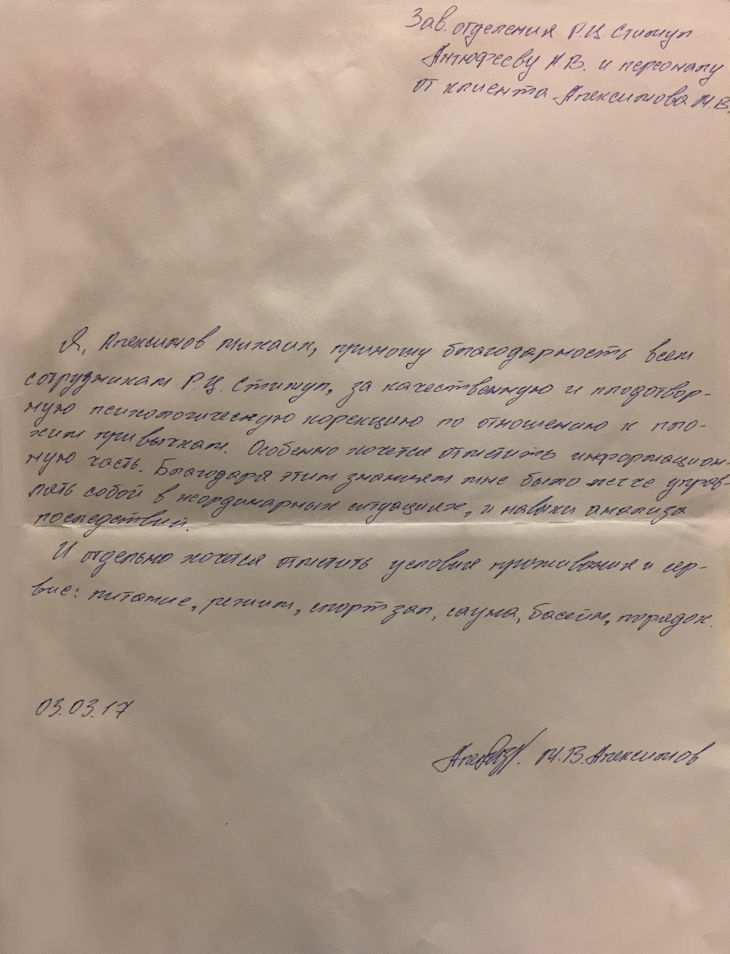 Зав. отделения Р.Ц. Стимул
Антюфееву А.В. и персоналу
от клиента Алексимова М.В.
Я, Алексимов Михаил, приношу благодарность всем
сотрудникам Р.Ц. Стимул, за качественную и плодотвор-
ную психологическую корекцию по отношению к пло-
хим привычкам. Особенно хочется отметить информацион-
ную часть. Благодаря этим знаниям мне было легче управ-
лять собой в неординарных ситуациях, и навыки анализа
последствий.
И отдельно хочется отметить условия проживания и сер-
вис: питание, режим, спорт зал, сауна, басейн, порядок.
03.03.17
М.В. Алексимов